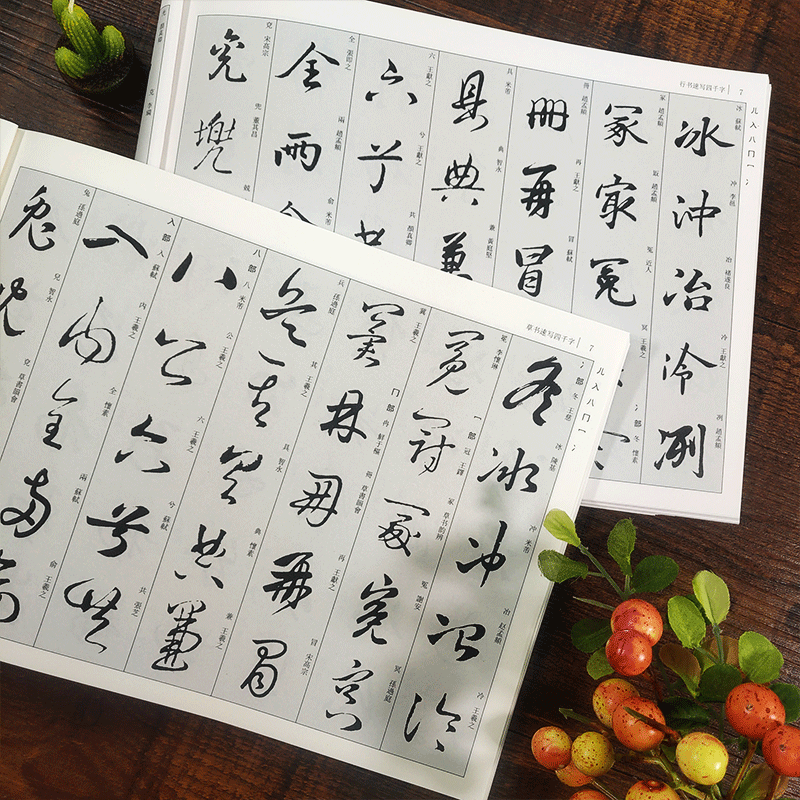 行书速写四千字 7
儿入八冂冖冫
冰 蘇軾 冲 李邕 冶 褚遂良 冷 王獻之 冽 趙孟頫
冢 趙孟頫 冣 趙孟頫 冤 近人 冥 王羲之 冫部 冬 懷素
冊 趙孟頫 再 王獻之 冒 蘇軾
具 米芾 典 智永 兼 黃庭堅
六 王獻之 兮 王獻之 共 顏真卿
全 張即之 兩 趙孟頫 俞 米芾
兗 宋高宗 兜 董其昌 兢
草书速写四千字 7
儿入八冂冖冫
冫部 冬 王慈 冰 陳基 冲 米芾 冶 赵孟頫 冷 王羲之
冕 李懷琳 冖部 冠 王鐸 冢 草书韵辨 冤 謝安 冥 孫過庭
冀 王羲之 冂部 冉 鮮于樞 冊 草書韻會 再 王獻之 冒 宋高宗
兵 孫過庭 其 王羲之 具 智永 典 懷素 兼 王羲之
八部 八 米芾 公 王羲之 六 王羲之 兮 蘇軾 共 張芝
入部 入 蘇軾 内 王羲之 全 懷素 兩 蘇軾 俞 王獻之
兔 孫過庭 兒 智永 兗 草書韻會